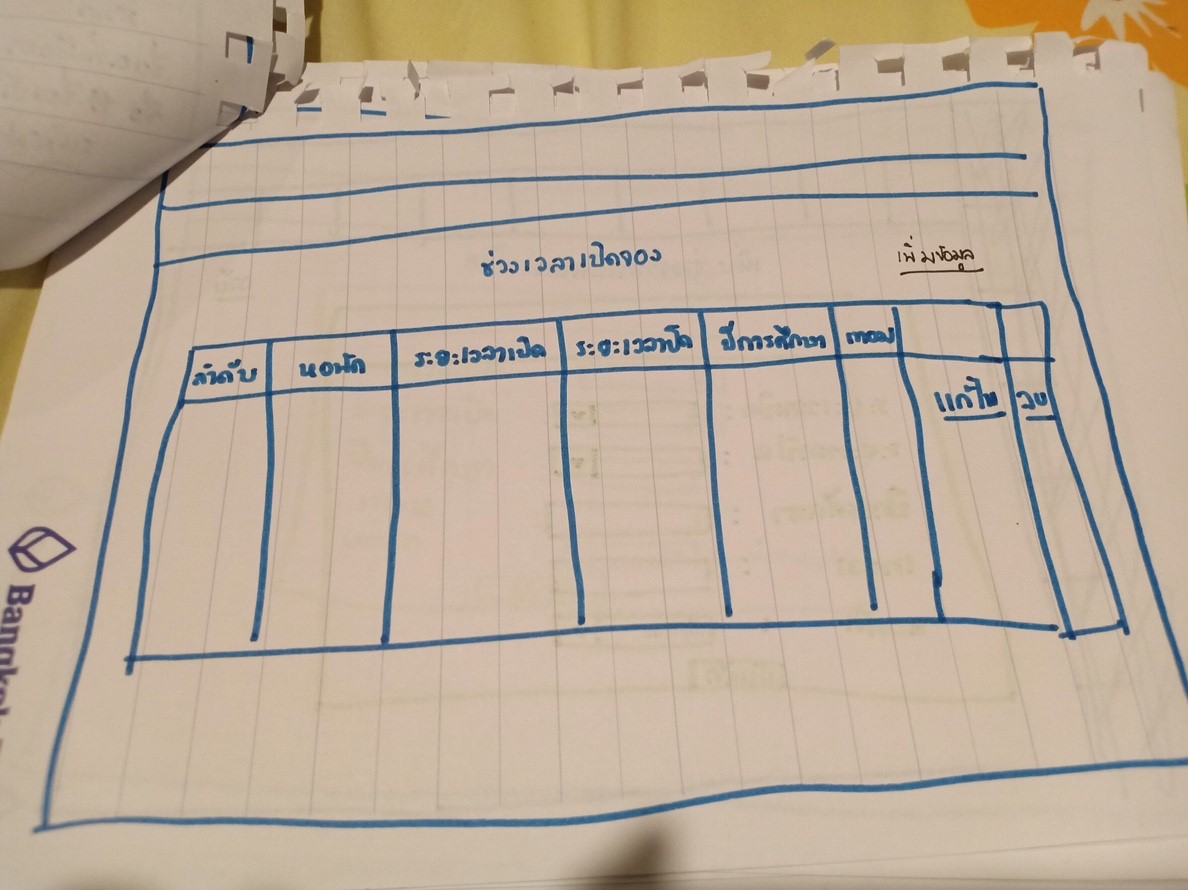 ช่วงเวลาเปิดจอง
เพิ่มข้อมูล
ลำดับ หอพัก ระยะเวลาเปิด ระยะเวลาปิด ปีการศึกษา เทอม
แก้ไข ลบ